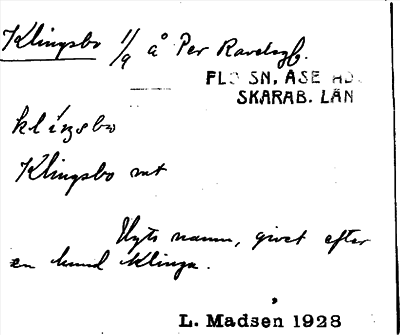 Klingsbo 1/9 å Per
FLO SN, ÅSE HD.
SKARAB. LÄN
klíŋsbω
Klingsbo mt
Nytt namn, givet efter
en hund Klinga.
L. Madsen 1928